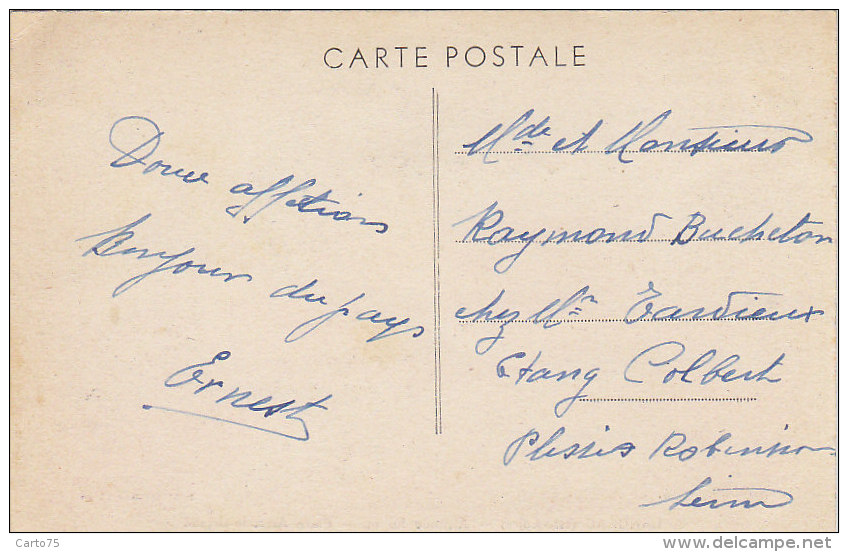 CARTE POSTALE
Douce affetions
Bonjour du pays
Ernest
Mde et Monsieur
Raymond Bucheton
chez Mr Tardieux
Etang Colbert
Plessis Robinson
Seine
Carto75
delcampe.net